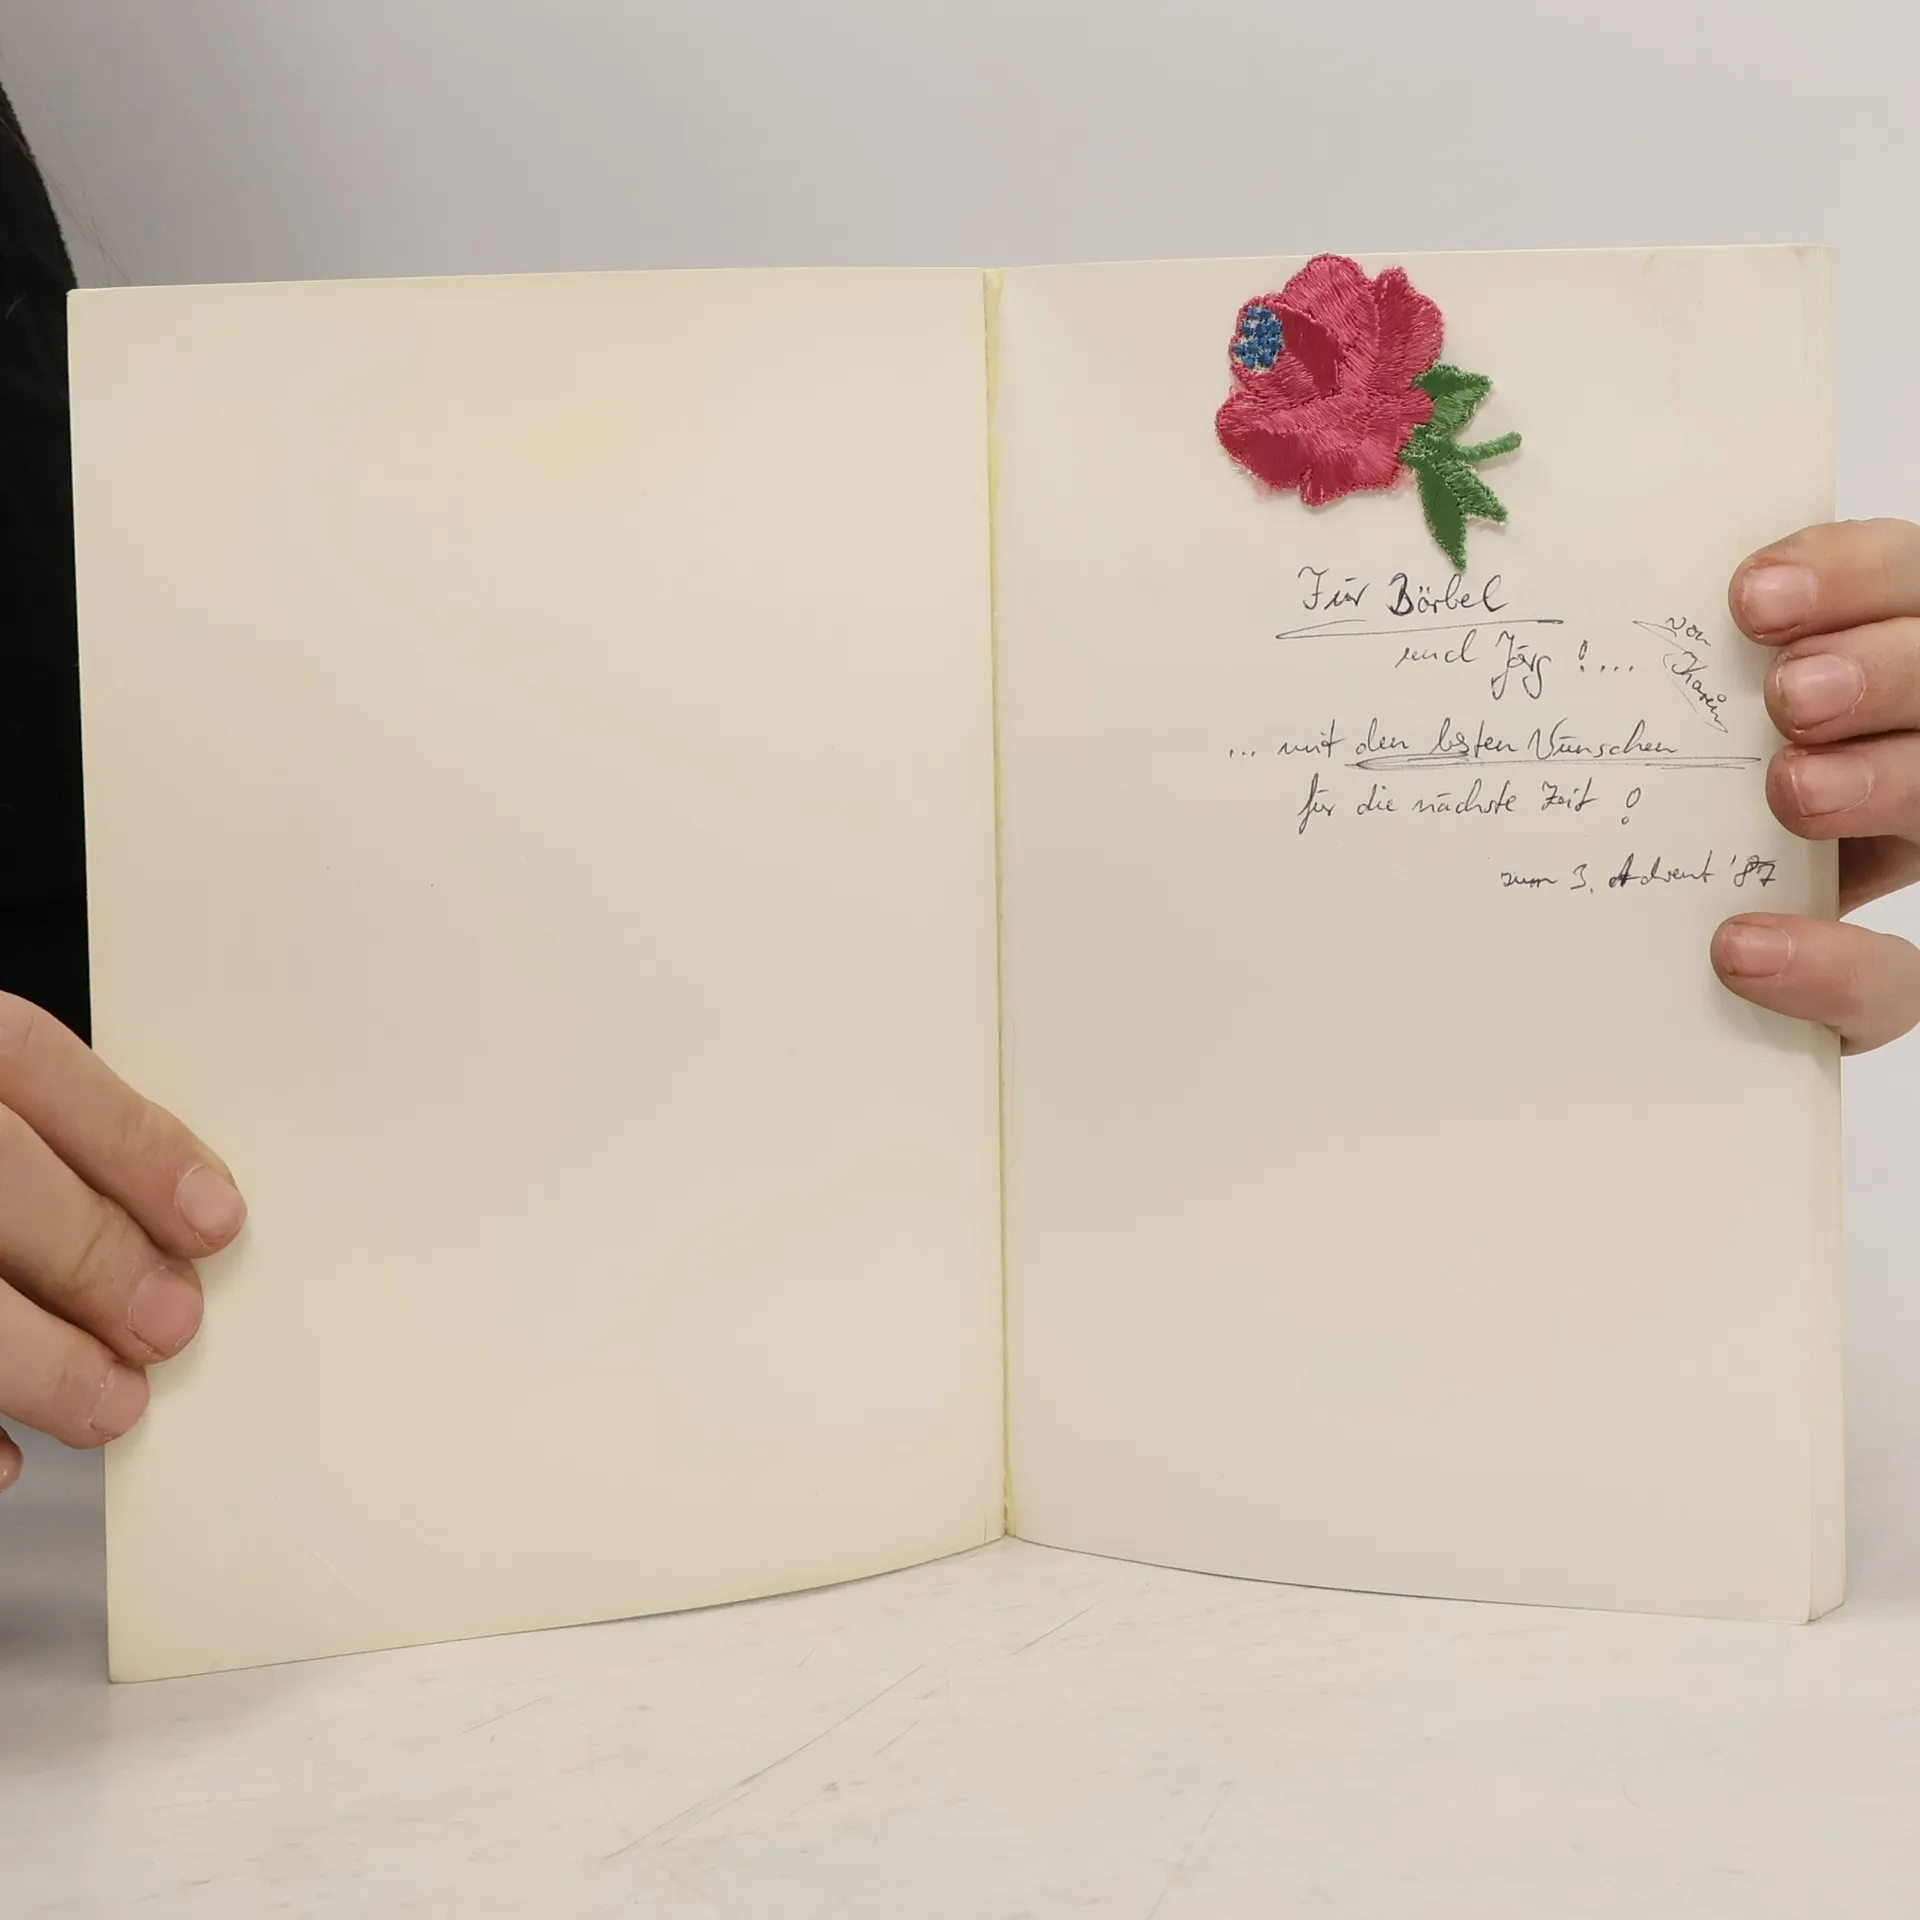 Für Bärbel
und Jörg !...
von
Karin
... mit den besten Wünschen
für die nächste Zeit !
zum 3. Advent '87